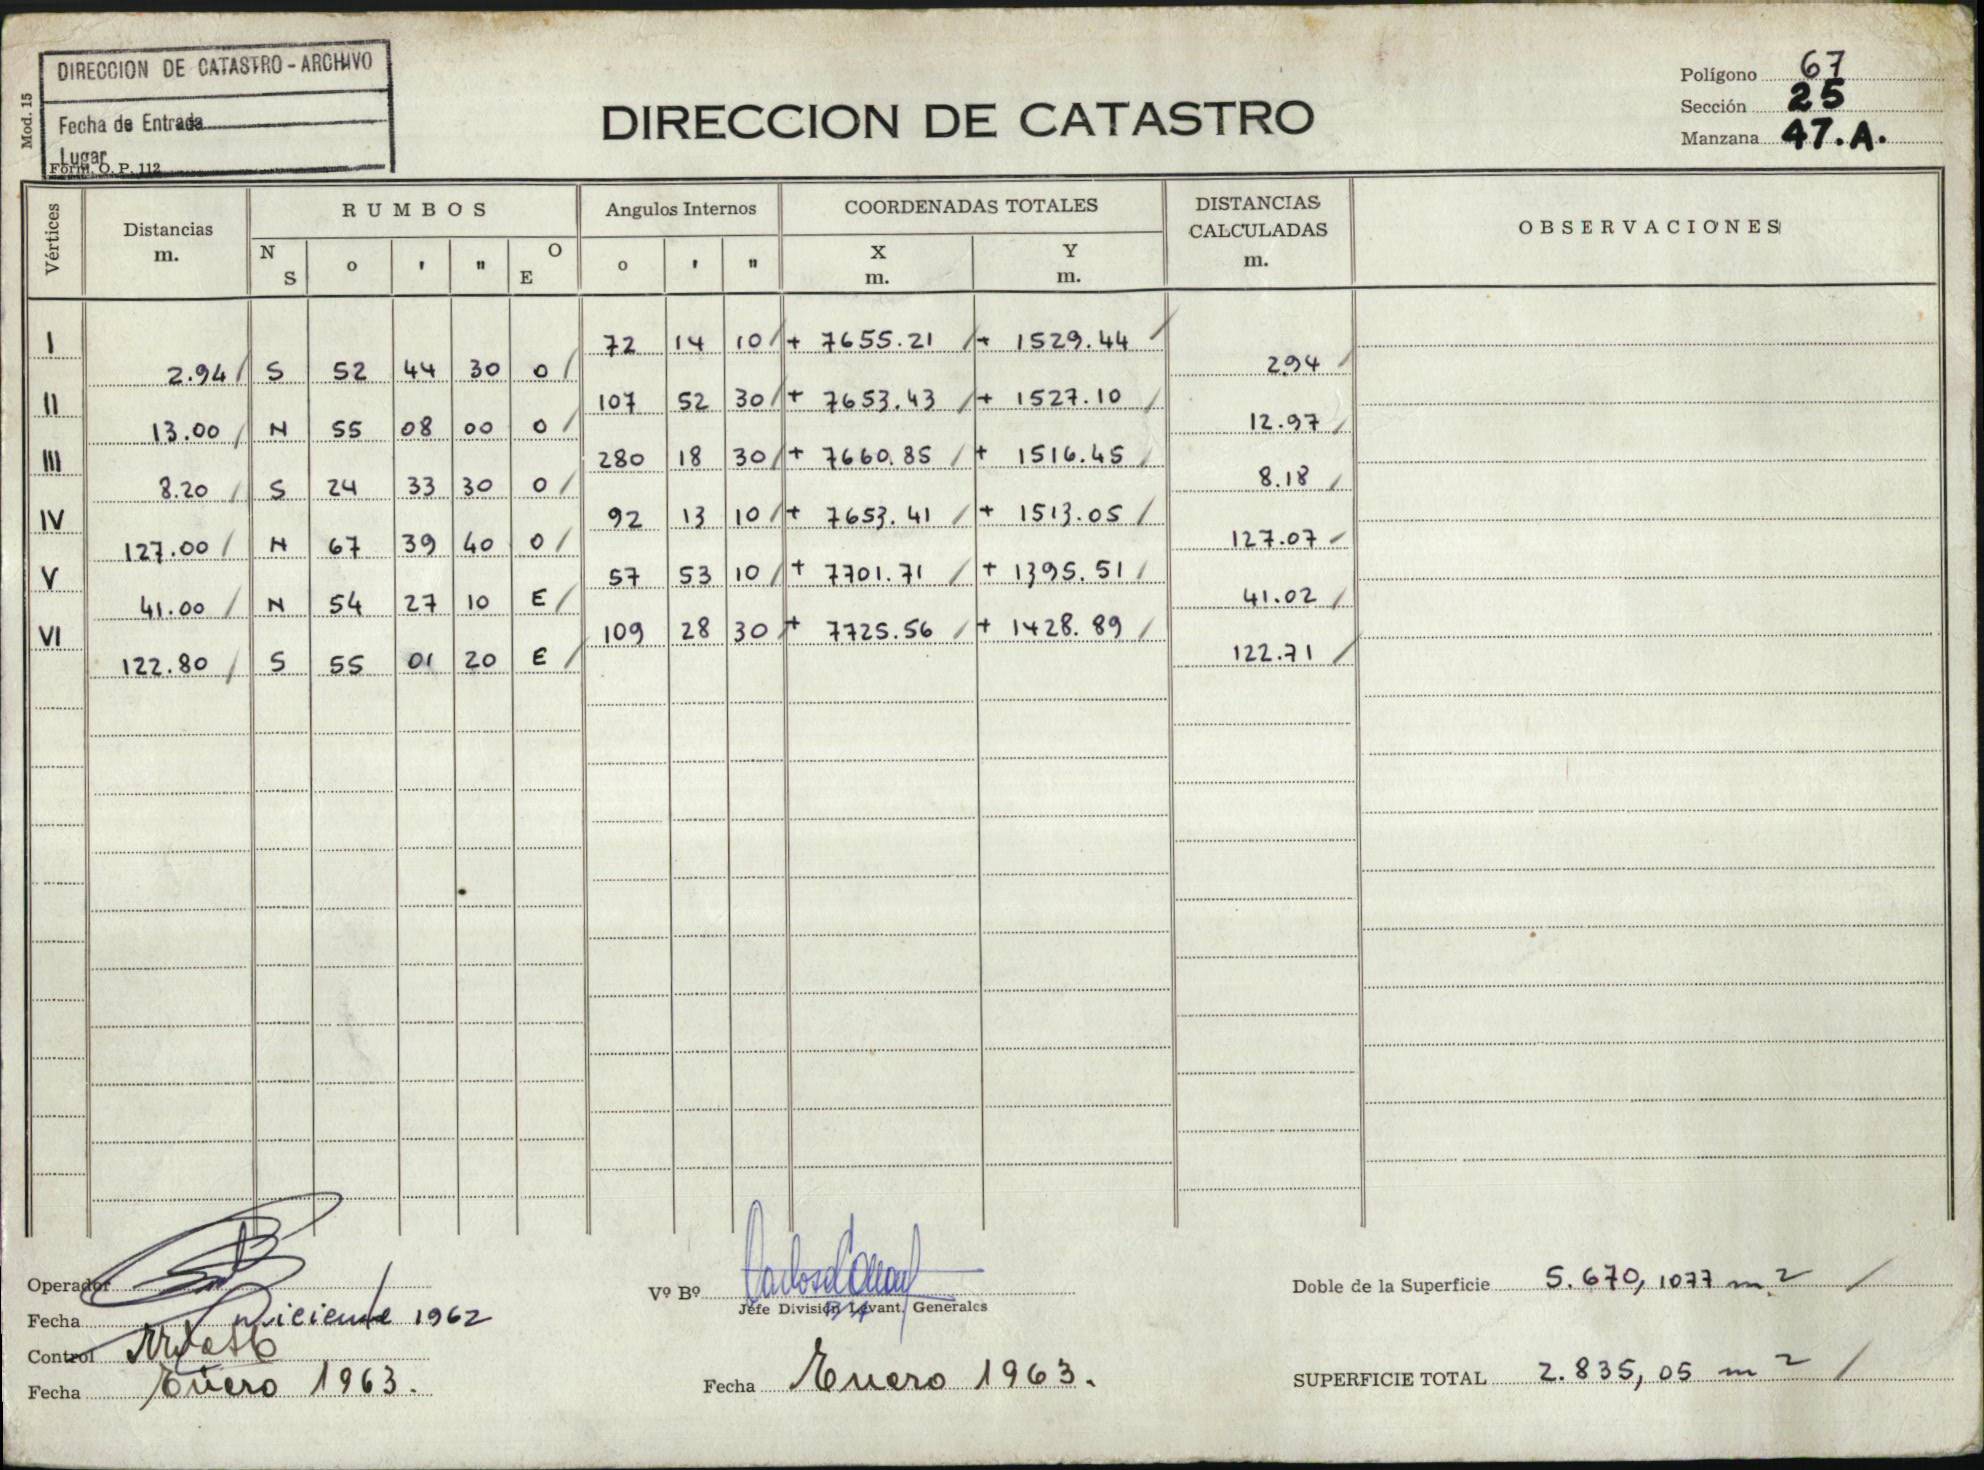 DIRECCION DE CATASTRO - ARCHIVO
Fecha de Entrada
Lugar
Mod. 15
Form. O. P. 112
DIRECCION DE CATASTRO
Polígono 67
Sección 25
Manzana 47.A.
Vértices
Distancias m.
RUMBOS
N S ° ' " O E
Angulos Internos
° ' "
COORDENADAS TOTALES
X m. Y m.
DISTANCIAS CALCULADAS m.
OBSERVACIONES
I 72 14 10 + 7655.21 + 1529.44
2.94 S 52 44 30 O 2.94
II 107 52 30 + 7653.43 + 1527.10
13.00 N 55 08 00 O 12.97
III 280 18 30 + 7660.85 + 1516.45
8.20 S 24 33 30 O 8.18
IV 92 13 10 + 7653.41 + 1513.05
127.00 N 67 39 40 O 127.07
V 57 53 10 + 7701.71 + 1395.51
41.00 N 54 27 10 E 41.02
VI 109 28 30 + 7725.56 + 1428.89
122.80 S 55 01 20 E 122.71
Operador
Fecha Diciembre 1962
Control
Fecha Enero 1963.
Vº Bº
Jefe División Levant. Generales
Fecha Enero 1963.
Doble de la Superficie 5.670,1077 m2
SUPERFICIE TOTAL 2.835,05 m2